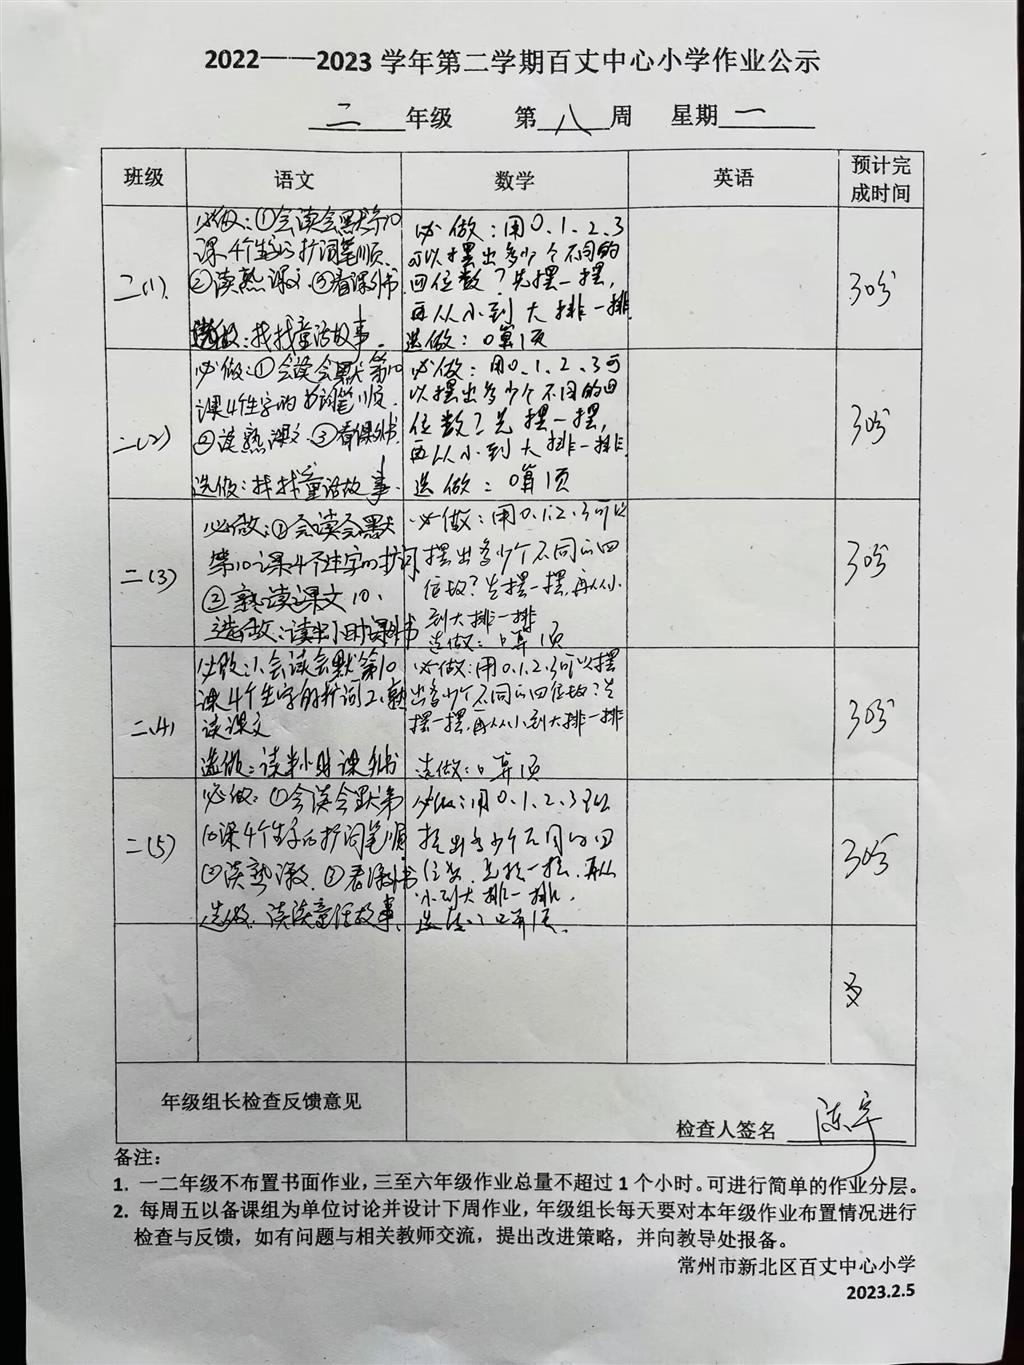 2022——2023 学年第二学期百丈中心小学作业公示
二 年级 第 八 周 星期 一
班级 语文 数学 英语 预计完
成时间
二(1)
必做:①会读会默第10
课4个生字的扩词笔顺.
②读熟课文.③看课外书
选做:找找童话故事.
必做:用0、1、2、3
可以摆出多少个不同的
四位数?先摆一摆,
再从小到大排一排.
选做:口算1页
30分
二(2)
必做:①会读会默第10
课4个生字的扩词笔顺.
②读熟课文.③看课外书.
选做:找找童话故事.
必做:用0、1、2、3可
以摆出多少个不同的四
位数?先摆一摆,
再从小到大排一排.
选做:口算1页
30分
二(3)
必做:①会读会默
第10课4个生字的扩词
②熟读课文10、
选做:读半小时课外书
必做:用0.1.2.3可以
摆出多少个不同的四
位数?先摆一摆,再从小
到大排一排
选做:口算1页
30分
二(4)
必做:1、会读会默第10
课4个生字的扩词2、熟
读课文
选做:读半小时课外书
必做:用0.1.2.3可以摆
出多少个不同的四位数?先
摆一摆,再从小到大排一排
选做:口算1页
30分
二(5)
必做:①会读会默第
10课4个生字的扩词笔顺
②读熟课文.③看课外书
选做.读读童话故事.
必做:用0、1、2、3可以
摆出多少个不同的四
位数.先摆一摆.再从
小到大排一排.
选做:口算1页.
30分
年级组长检查反馈意见
检查人签名 陈宇
备注:
1. 一二年级不布置书面作业,三至六年级作业总量不超过 1 个小时。可进行简单的作业分层。
2. 每周五以备课组为单位讨论并设计下周作业,年级组长每天要对本年级作业布置情况进行
检查与反馈,如有问题与相关教师交流,提出改进策略,并向教导处报备。
常州市新北区百丈中心小学
2023.2.5